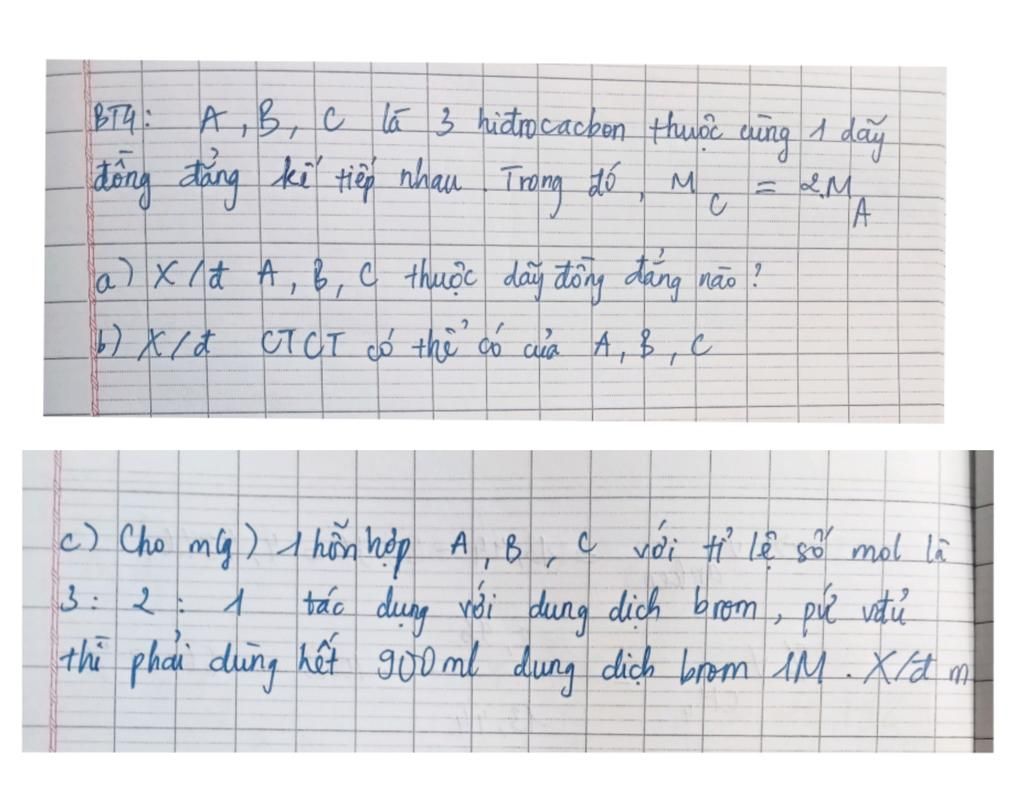 BT4: A, B, C là 3 hiđrocacbon thuộc cùng 1 dãy
đồng đẳng kế tiếp nhau. Trong đó, M_C = 2.M_A
a) X/đ A, B, C thuộc dãy đồng đẳng nào?
b) X/đ CTCT có thể có của A, B, C
c) Cho m(g) 1 hỗn hợp A, B, C với tỉ lệ số mol là
3 : 2 : 1 tác dụng với dung dịch brom, pứ vđủ
thì phải dùng hết 900ml dung dịch brom 1M. X/đ m